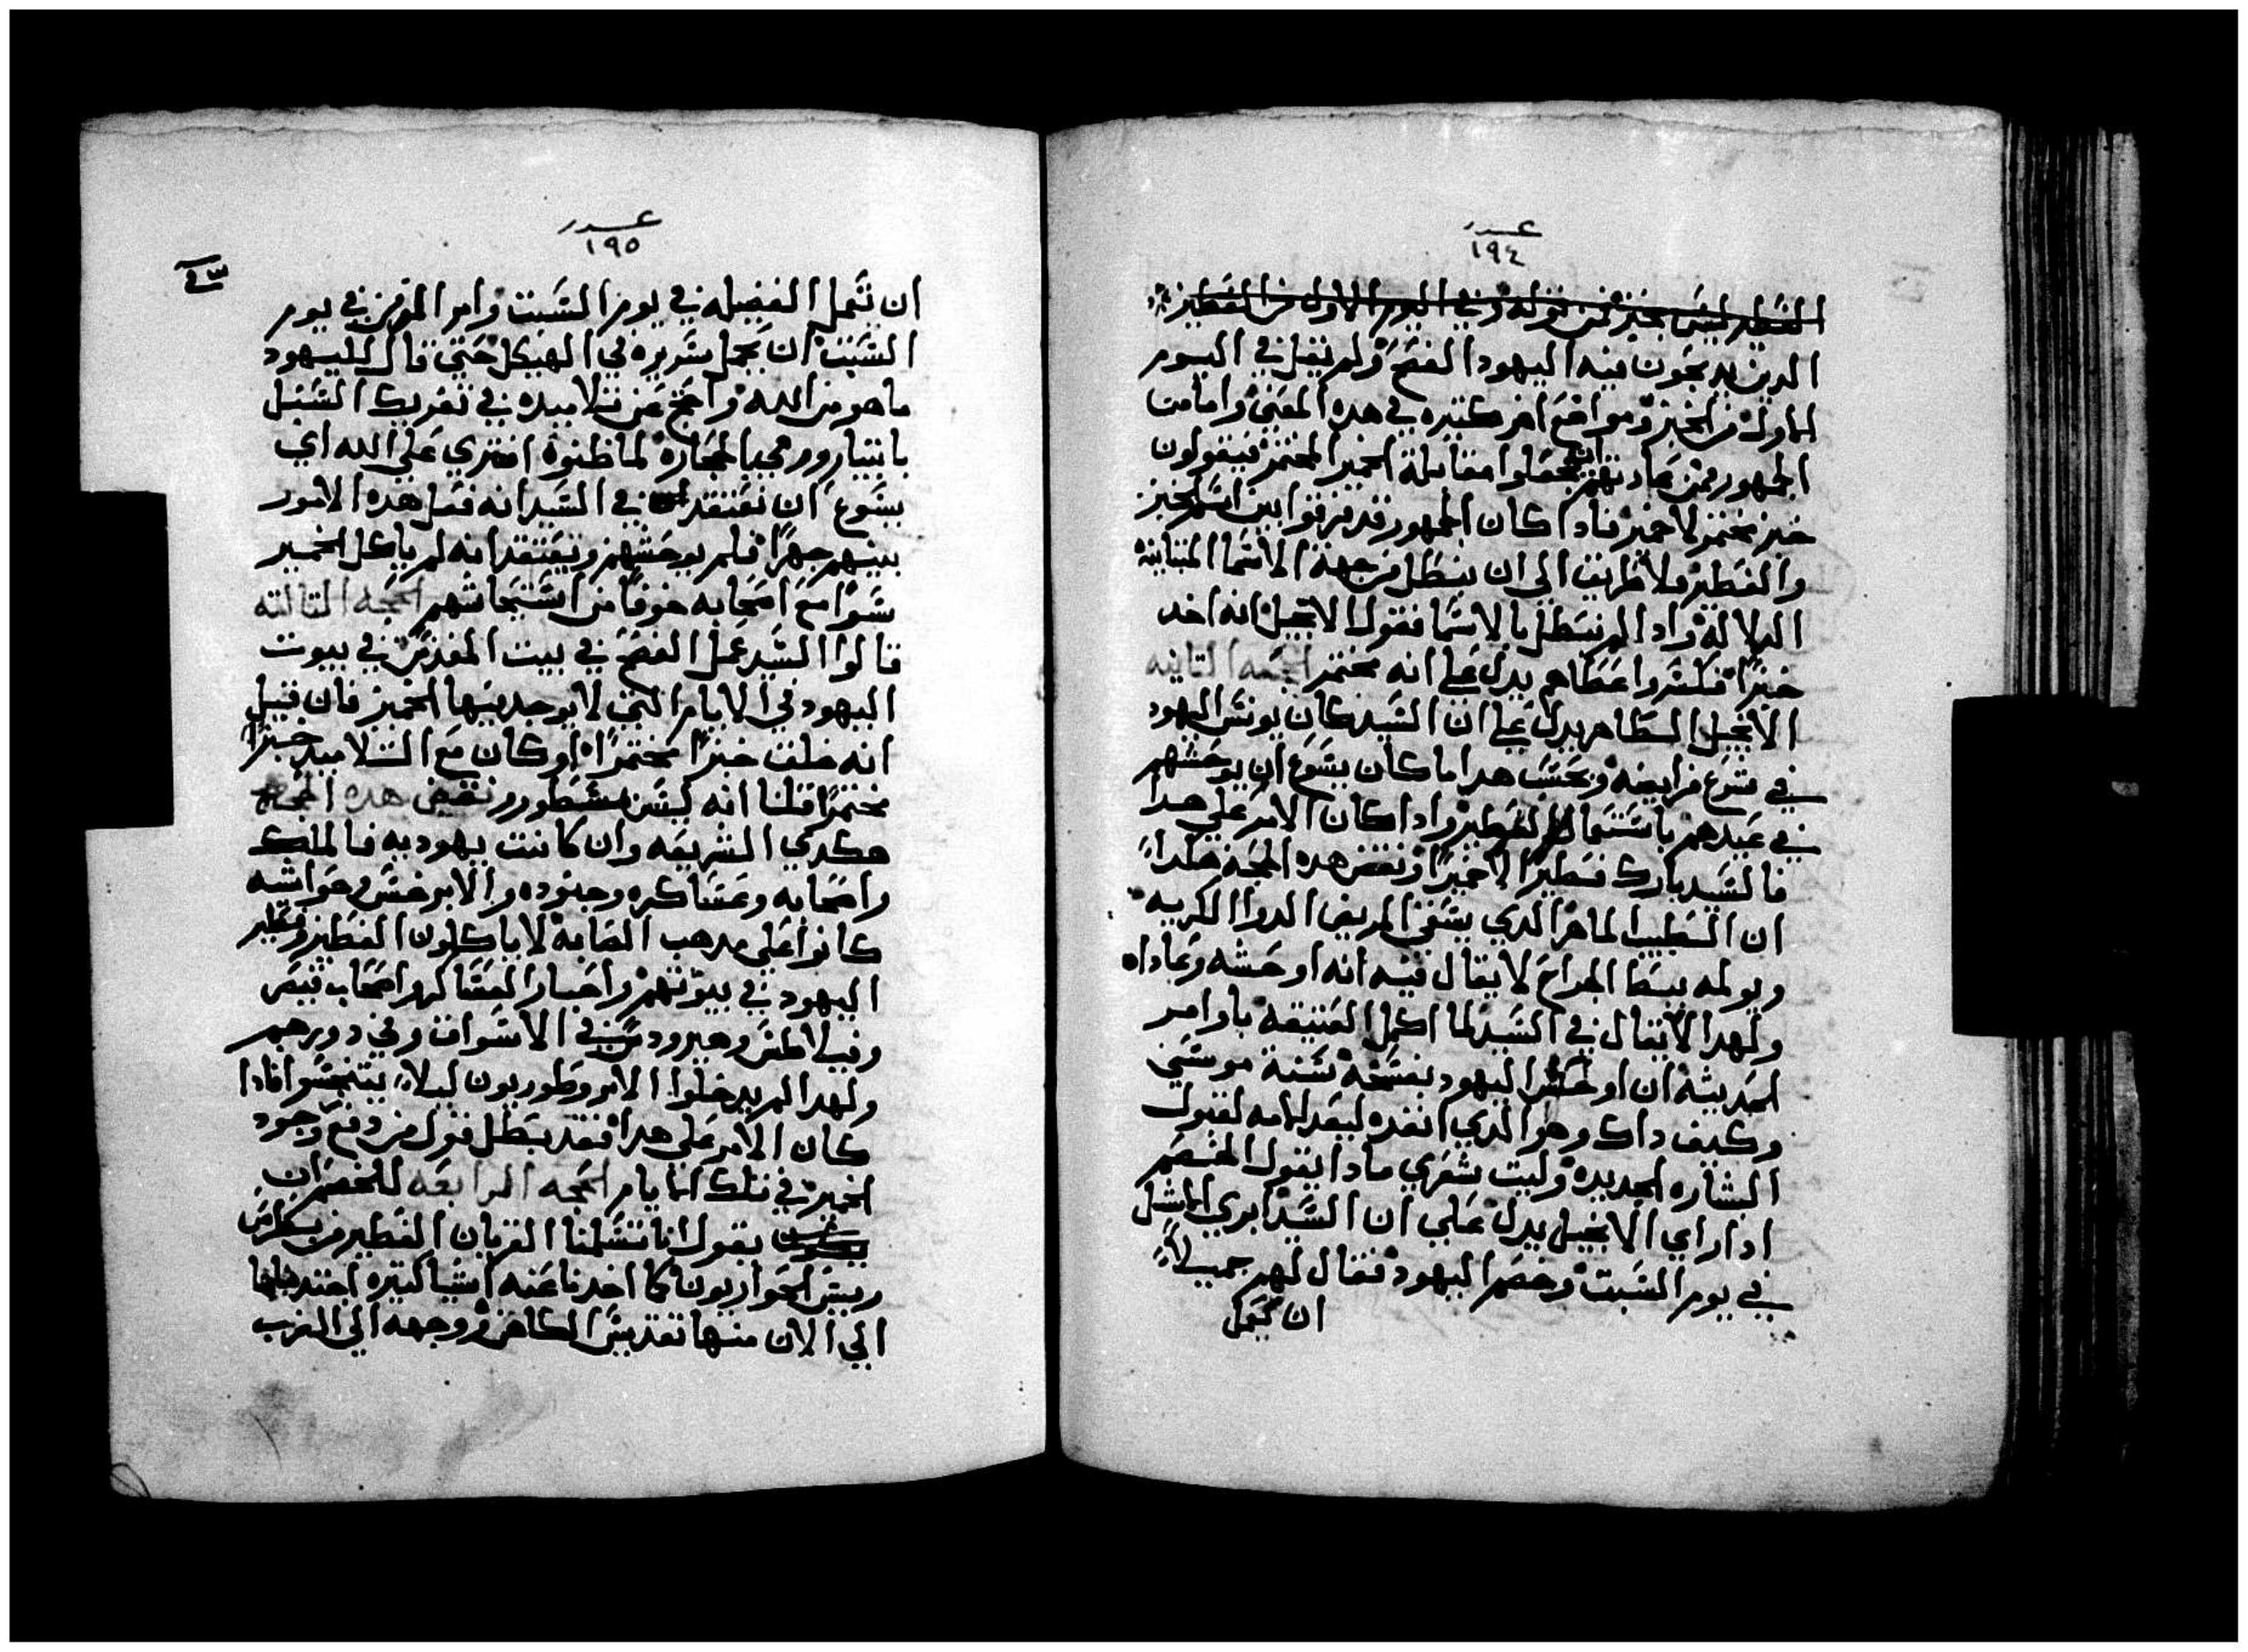 عدد
١٩٤
الفطير ليس بخبز فمن قوله وفي اليوم الاول من الفطير
الدين يدبحون فيه اليهود الفصح ولم يقل في اليوم
الاول من الخبز ومواضع اخر كتيره في هده المعني واما من
الجمهور فمن عادتهم ان يجعلوا مقابلة الخمير المختمر فيقولون
خبز مختمر لا خمير فادا كان الجمهور قد فرقوا بين اسم الخبز
والفطير فلا طريق الي ان يبطل من جهة الاسما المتباينه
الدلاله وادا لم نبطل بالاسما فقول الانجيل انه اخد
خبزًا فكسر واعطاهم يدل علي انه مختمر الحجه التانيه
الانجيل الطاهر يدل علي ان السيد كان يونس اليهود
في شرع فرايضه وبحسب هدا ما كان يسوع ان يوحشهم
في عيدهم باستعمال الفطير وادا كان الامر علي هدا
فالسيد بارك فطيرًا لا خميرًا ونقض هده الحجة هكداً
ان الطبيب الماهر الدي يسقي المريض الدوا الكريه
ويولمه ببط الجراح لا يقال فيه انه اوحشه وعاداه
ولهدا لا يقال في السيد لما اكمل العتيقه باوامر
الحديثه ان اوحش اليهود بفسخه سنة موسي
وكيف داك وهو الدي انفده ليعد لامه لقبول
البشاره الجديده وليت شعري مادا يقول الخصم
ادا راي الانجيل يدل علي ان السيد ابري الاشل
في يوم السبت وخصم اليهود فقال لهم جميلاً
ان نعمل
عدد
١٩٥
ان نعمل الفضيله في يوم السبت وامر المزمن في يوم
السبت ان يحمل سريره في الهيكل حتي قال لليهود
ما هو من الله واحتج عن تلاميده في تفريك السنبل
باييار ورمي بالحجاره لما ظنوه افتري علي الله اي
يسوع ان نعتقد في السيد انه فعل هده الامور
بينهم جهرًا فلم يوحشهم ويعتقد انه لم ياكل الخمير
سرًا مع اصحابه خوفًا من استيحاشهم الحجه التالته
قالوا السيد عمل الفصح في بيت المقدس في بيوت
اليهود في الايام التي لا يوجد فيها الخمير فان قيل
انه خلق خبزًا مختمرًا او كان مع التلاميد خبزًا
مختمرًا قلنا انه ليس مسطور ونقيض هده الحجه
هكدي الشريعه وان كانت يهوديه فالملك
واصحابه وعساكره وجنوده والابوخس وحواشيه
كانوا علي مدهب الصابه لا ياكلون الفطير وفطير
اليهود في بيوتهم واخبار العساكر واصحاب قيصر
وفيلاطس وهيرودس في الاسواق وفي دورهم
ولهدا لم يدخلوا الابروطوريون ليلاً يتنجسوا فادا
كان الامر علي هدا فقد بطل قول من دفع وجود
الخمير في تلك الايام الحجه الرابعه للخصم ان
يقول انا تسلمنا القربان الفطير من بطرس
رييس الحواريون كما اخدنا عنه اشيا كتيره
الي الان منها تقديس الكاهن ووجهه الي الغرب